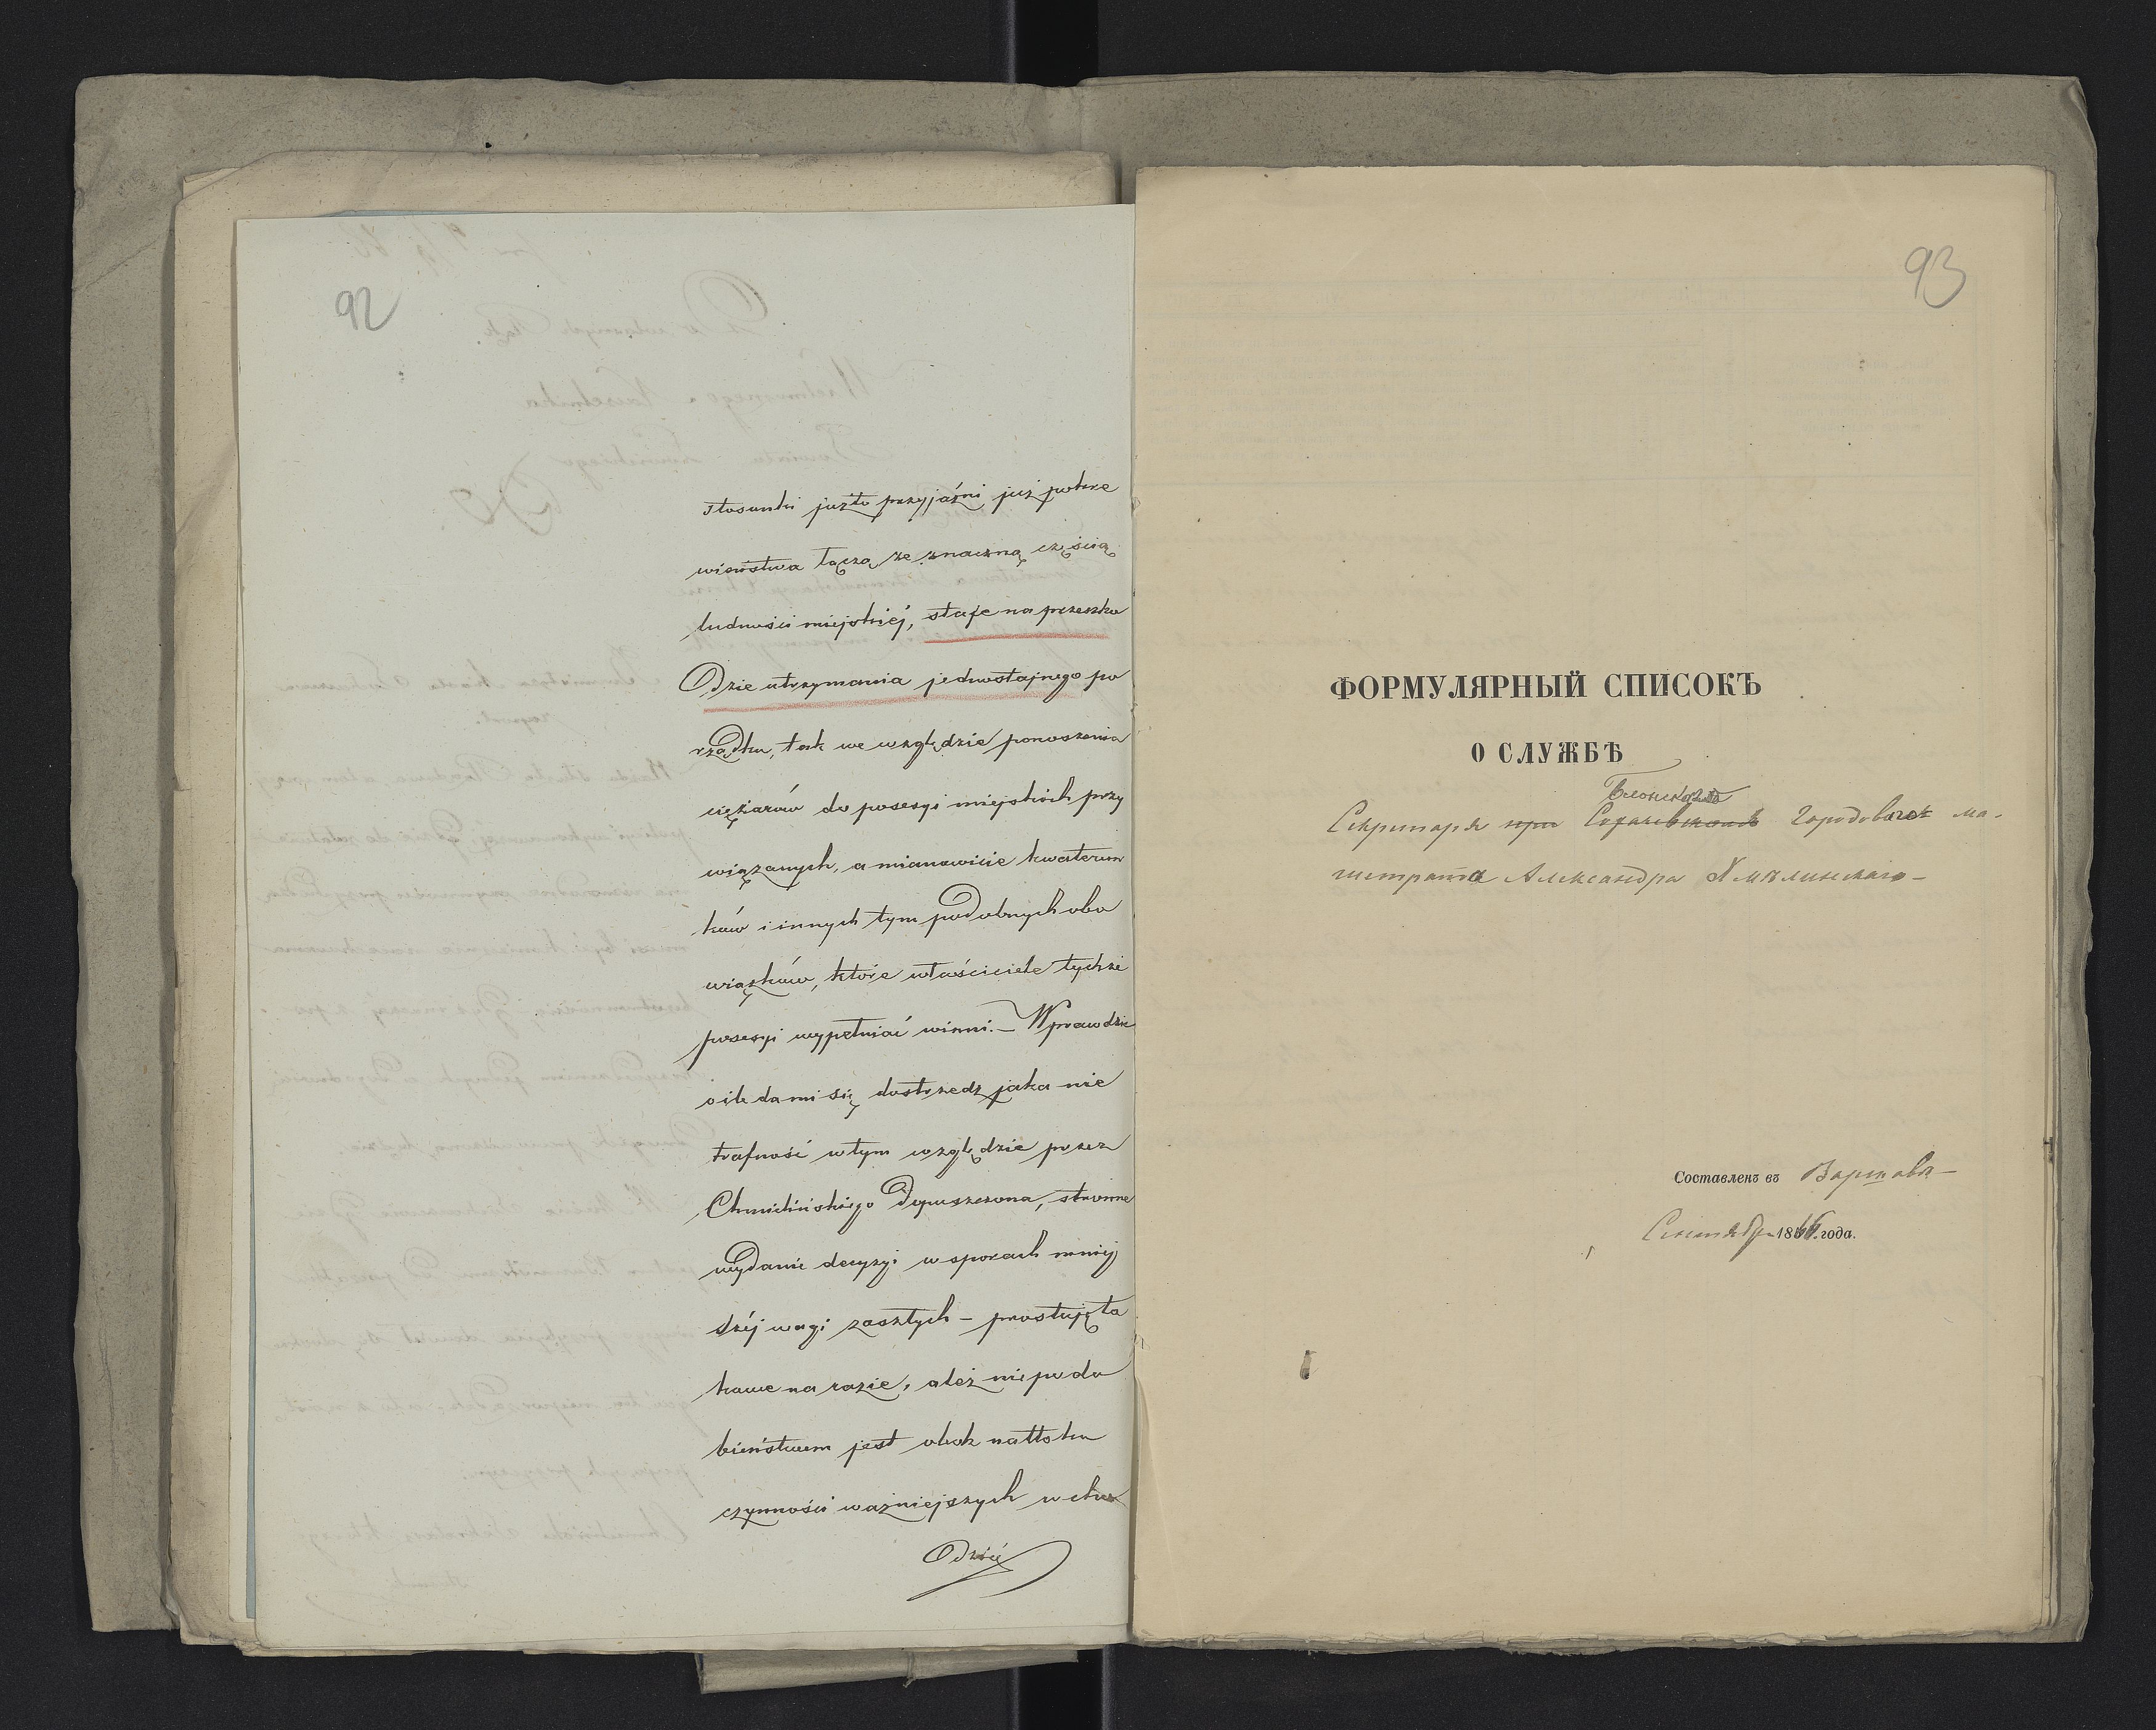 92
stosunki jużto przyjaźni już pokre
wieństwa łączą ze znaczną częścią
ludności miejskiéj, staje na przeszko
dzie utrzymania jednostajnego po
rządku, tak we względzie ponoszenia
ciężarów do posesyi miejskich przy
wiązanych, a mianowicie kwaterun
ków i innych tym podobnych obo
wiązków, które właściciele tychże
posesyi wypełniać winni. – Wprawdzie
o ile da mi się dostrzedz jaka nie
trafność w tym względzie przez
Chmielińskiego dopuszczona, stronne
wydanie decyzyi w sporach mniéj
széj wagi zaszłych – prostuję ta
kowe na razie, ależ niepodo
bieństwem jest obok natłoku
czynności ważniejszych wcho
dzić
93
ФОРМУЛЯРНЫЙ СПИСОКЪ
О СЛУЖБѢ
Блонскаго
Секретаря при Сохачевскомъ Городоваго ма-
гистрата Александра Хмѣлинскаго –
Составленъ въ Варшавѣ –
Сентября 1866 года.